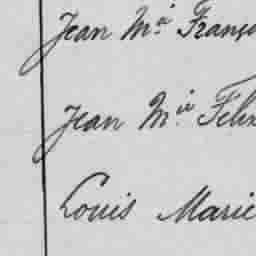 Jean Mie Franço
Jean Mie Félix
Louis Marie